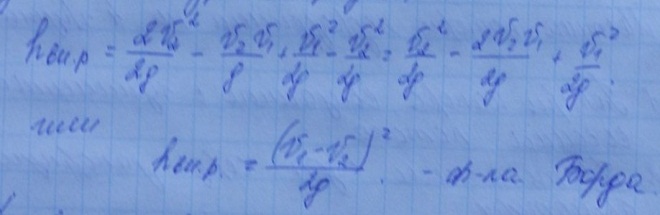 hвн.р = 2υ₂²/2g - υ₂υ₁/g + υ₁²/2g - υ₂²/2g = υ₂²/2g - 2υ₂υ₁/2g + υ₁²/2g.
или
hвн.р. = (υ₁-υ₂)²/2g. - ф-ла Борда.